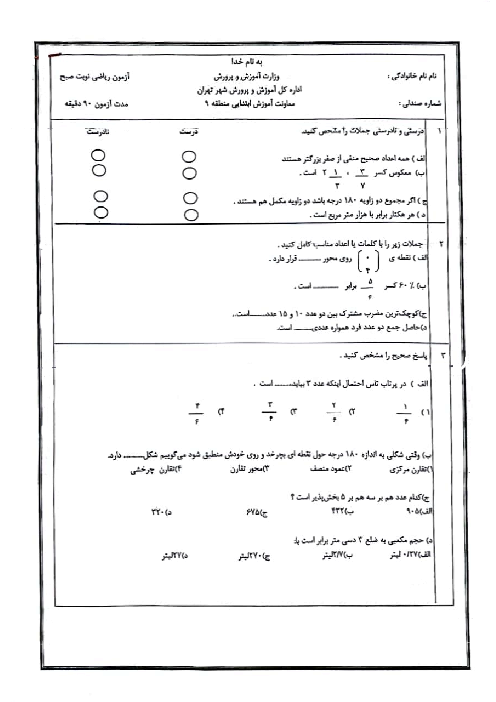 به نام خدا
نام نام خانوادگی :
وزارت آموزش و پرورش
آزمون ریاضی نوبت صبح
اداره کل آموزش و پرورش شهر تهران
شماره صندلی :
معاونت آموزش ابتدایی منطقه ۹
مدت آزمون ۹۰ دقیقه
۱ درستی و نادرستی جملات را مشخص کنید. درست نادرست
الف ) همه اعداد صحیح منفی از صفر بزرگتر هستند.
ب) معکوس کسر ۳/۷ ، ۲ ۱/۳ است .
ج ) اگر مجموع دو زاویه ۱۸۰ درجه باشد دو زاویه مکمل هم هستند .
د ) هر هکتار برابر با هزار متر مربع است .
۲ جملات زیر را با کلمات یا اعداد مناسب کامل کنید .
الف ) نقطه ی [۰ ۴] روی محور ......... قرار دارد .
ب) ۶۰ ٪ کسر ۵/۶ برابر ............ است .
ج)کوچک‌ترین مضرب مشترک بین دو عدد ۱۰ و ۱۵ عدد........است..
د)حاصل جمع دو عدد فرد همواره عددی........ است.
۳ پاسخ صحیح را مشخص کنید .
الف ) در پرتاب تاس احتمال اینکه عدد ۳ بیاید........ است .
۱ ) ۱/۶ ۲) ۲/۶ ۳) ۳/۶ ۴) ۴/۶
ب) وقتی شکلی به اندازه ۱۸۰ درجه حول نقطه ای بچرخد و روی خودش منطبق شود می‌گوییم شکل........ دارد.
۱)تقارن مرکزی ۲)عمود منصف ۳)محور تقارن ۴)تقارن چرخشی
ج)کدام عدد هم بر سه هم بر ۵ بخش‌پذیر است ؟
الف)۹۰۵ ب)۴۳۲ ج)۶۷۵ د)۳۲۰
د) حجم مکعبی به ضلع ۳ دسی متر برابر است با:
الف)۰/۲۷ لیتر ب)۲/۷لیتر ج)۲۷۰لیتر د)۲۷لیتر